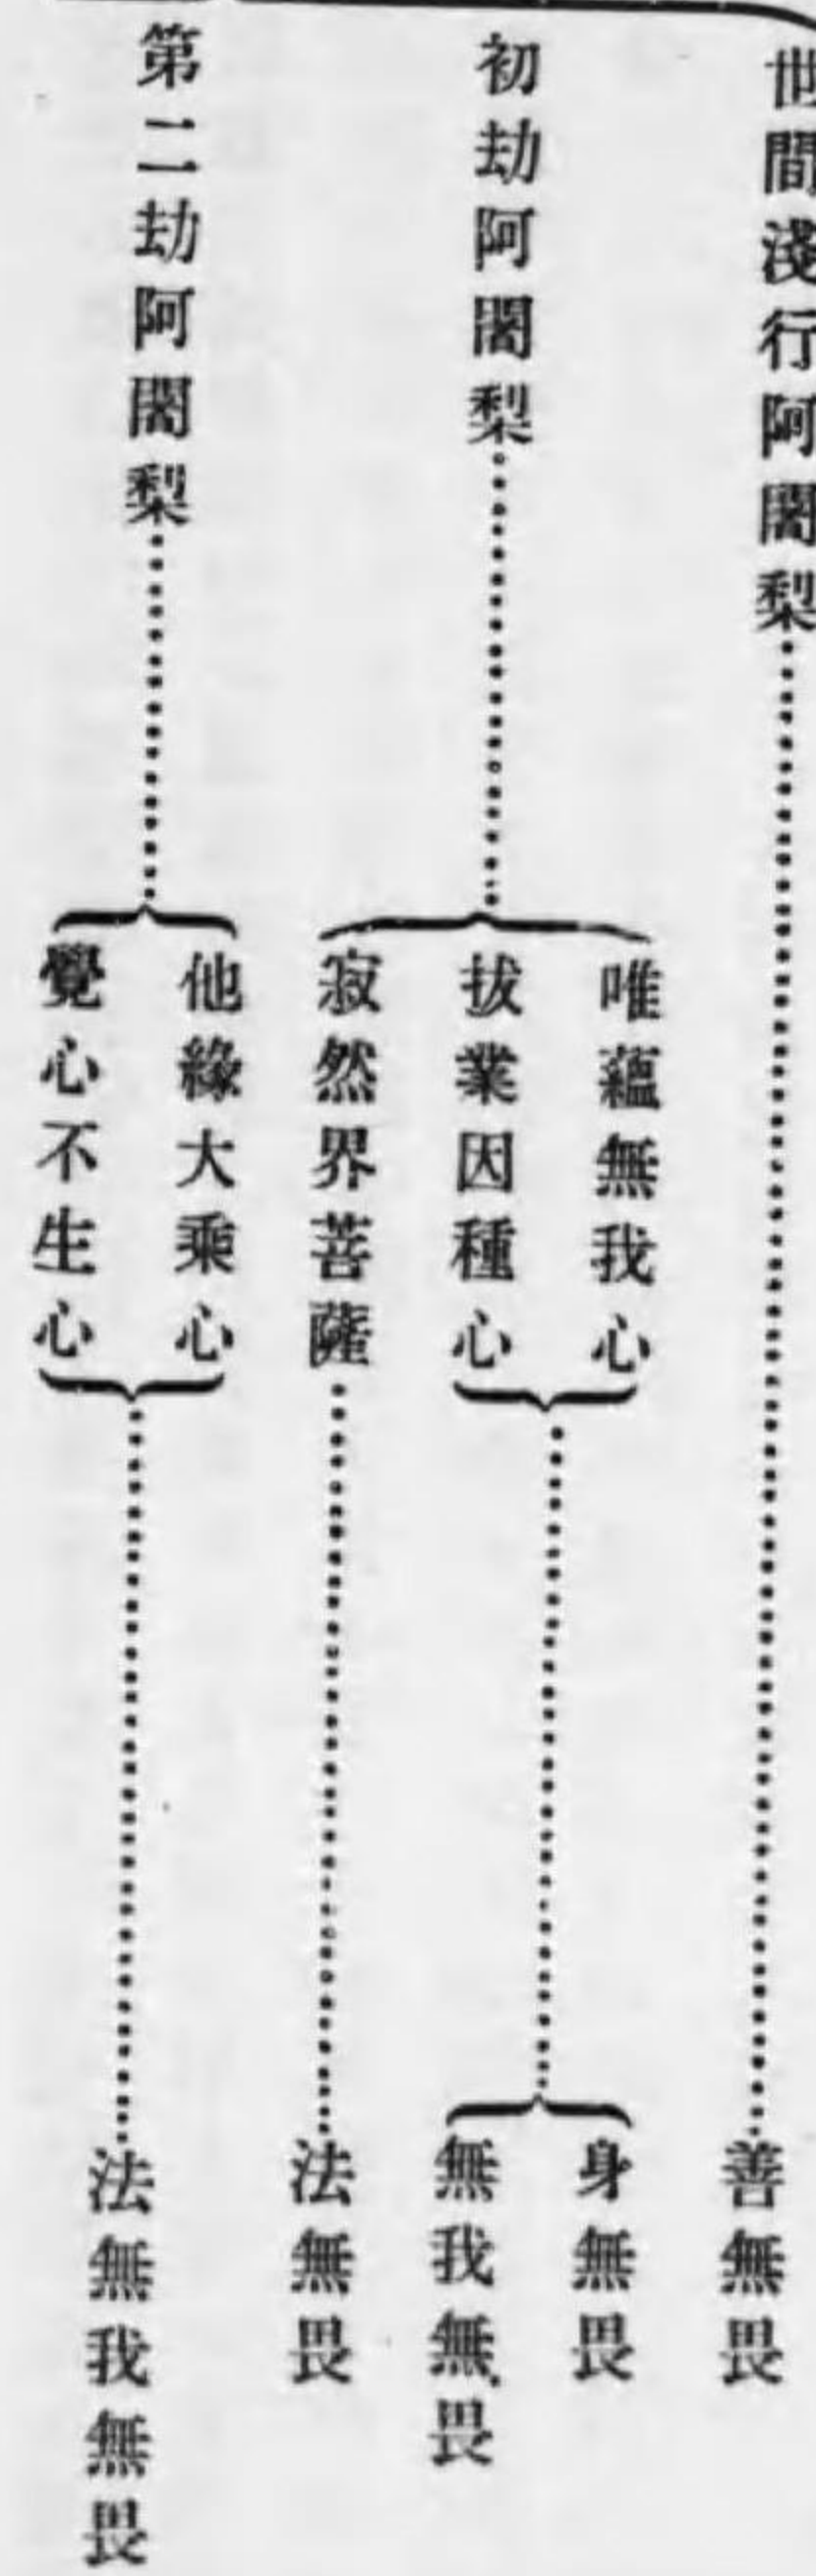 世間淺行阿闍梨
善無畏
初劫阿闍梨
唯蘊無我心
拔業因種心
身無畏
無我無畏
寂然界菩薩
法無畏
第二劫阿闍梨
他緣大乘心
覺心不生心
法無我無畏